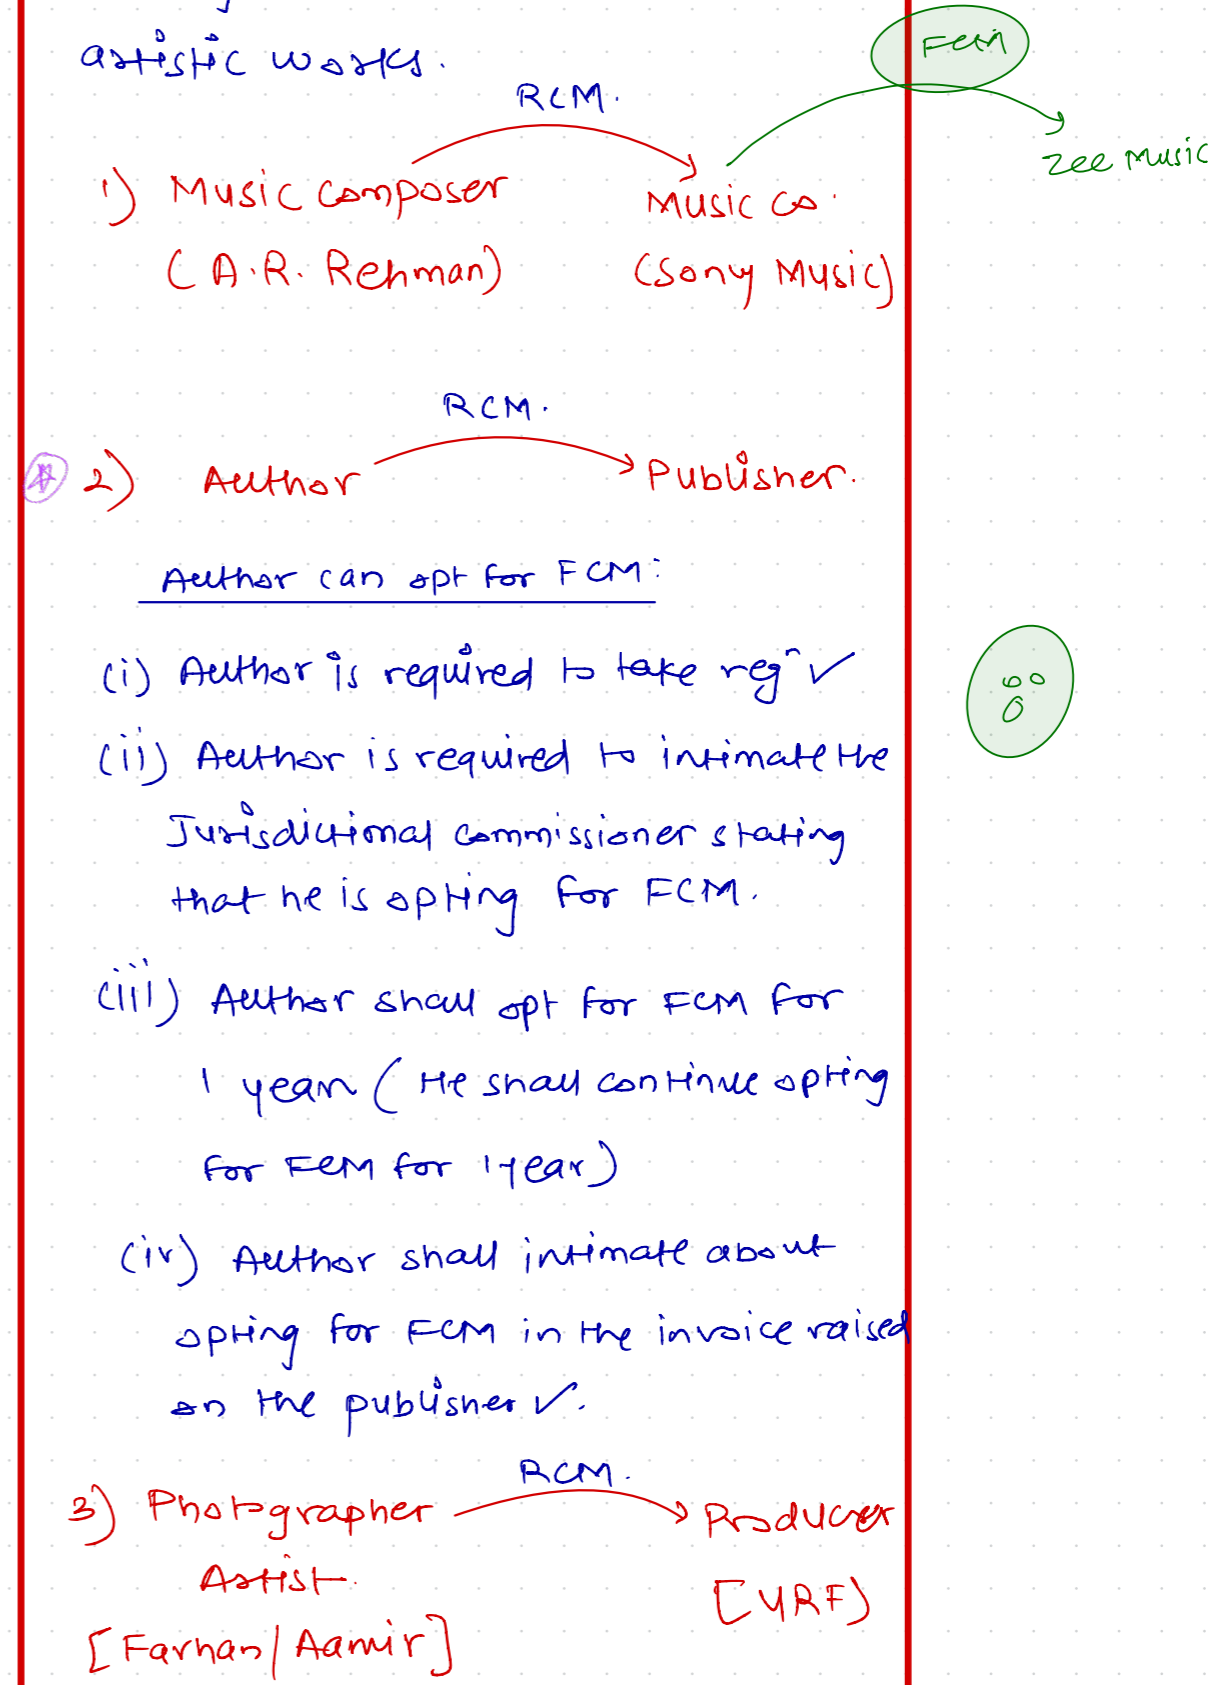 artistic works.
FCM
RCM.
Zee Music
1) Music Composer
Music Co.
(A.R. Rehman)
(Sony Music)
RCM.
2) Author
Publisher.
Author can opt for FCM:
(i) Author is required to take regn ✓
(ii) Author is required to intimate the
Jurisdictional Commissioner stating
that he is opting for FCM.
(iii) Author shall opt for FCM for
1 year (He shall continue opting
for FCM for 1 year)
(iv) Author shall intimate about
opting for FCM in the invoice raised
on the publisher ✓.
RCM.
3) Photographer
Producer
Artist
[YRF)
[Farhan/Aamir]